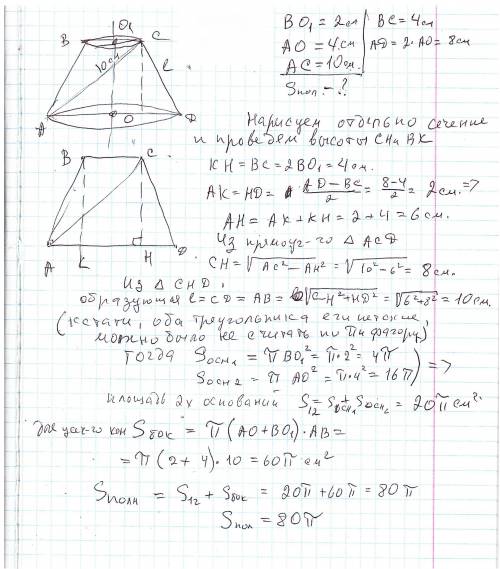 O₁
B C
10см
l
A O D
B C
A K H D
BO₁ = 2см | BC = 4см
AO = 4см | AD = 2·AO = 8см
AC = 10см
Sпол. - ?
Нарисуем отдельно сечение
и проведем высоты CH и BK
KH = BC = 2BO₁ = 4см.
AK = HD = (AD - BC)/2 = (8-4)/2 = 2см. =>
AH = AK + KH = 2 + 4 = 6см.
Из прямоуг-го Δ ACD
CH = √(AC² - AH²) = √(10² - 6²) = 8см.
Из Δ CHD,
образующая l = CD = AB = √(CH² + HD²) = √(6² + 8²) = 10см.
(кстати, оба треугольника египетские,
можно было не считать по Пифагору)
Тогда Sосн1 = π BO₁² = π·2² = 4π
Sосн2 = π AO² = π·4² = 16π) =>
площадь 2х оснований S₁₂ = Sосн1 + Sосн2 = 20π см².
Для усеч-го кон Sбок = π(AO + BO₁)·AB =
= π(2 + 4)·10 = 60π см²
Sполн = S₁₂ + Sбок = 20π + 60π = 80π
Sпол = 80π